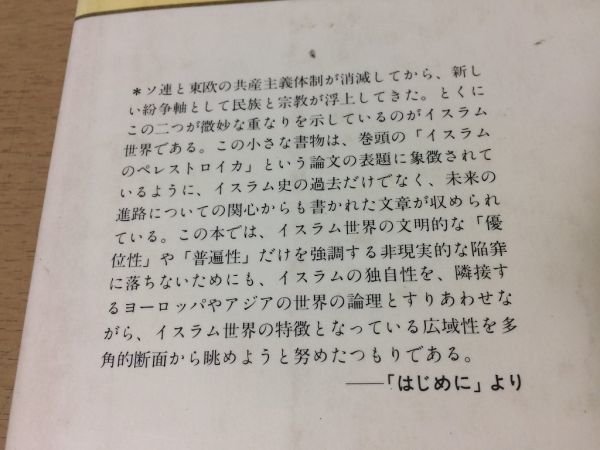 ＊ソ連と東欧の共産主義体制が消滅してから、新し
い紛争軸として民族と宗教が浮上してきた。とくに
この二つが微妙な重なりを示しているのがイスラム
世界である。この小さな書物は、巻頭の「イスラム
のペレストロイカ」という論文の表題に象徴されて
いるように、イスラム史の過去だけでなく、未来の
進路についての関心からも書かれた文章が収められ
ている。この本では、イスラム世界の文明的な「優
位性」や「普遍性」だけを強調する非現実的な陥穽
に落ちないためにも、イスラムの独自性を、隣接す
るヨーロッパやアジアの世界の論理とすりあわせな
がら、イスラム世界の特徴となっている広域性を多
角的断面から眺めようと努めたつもりである。
——「はじめに」より